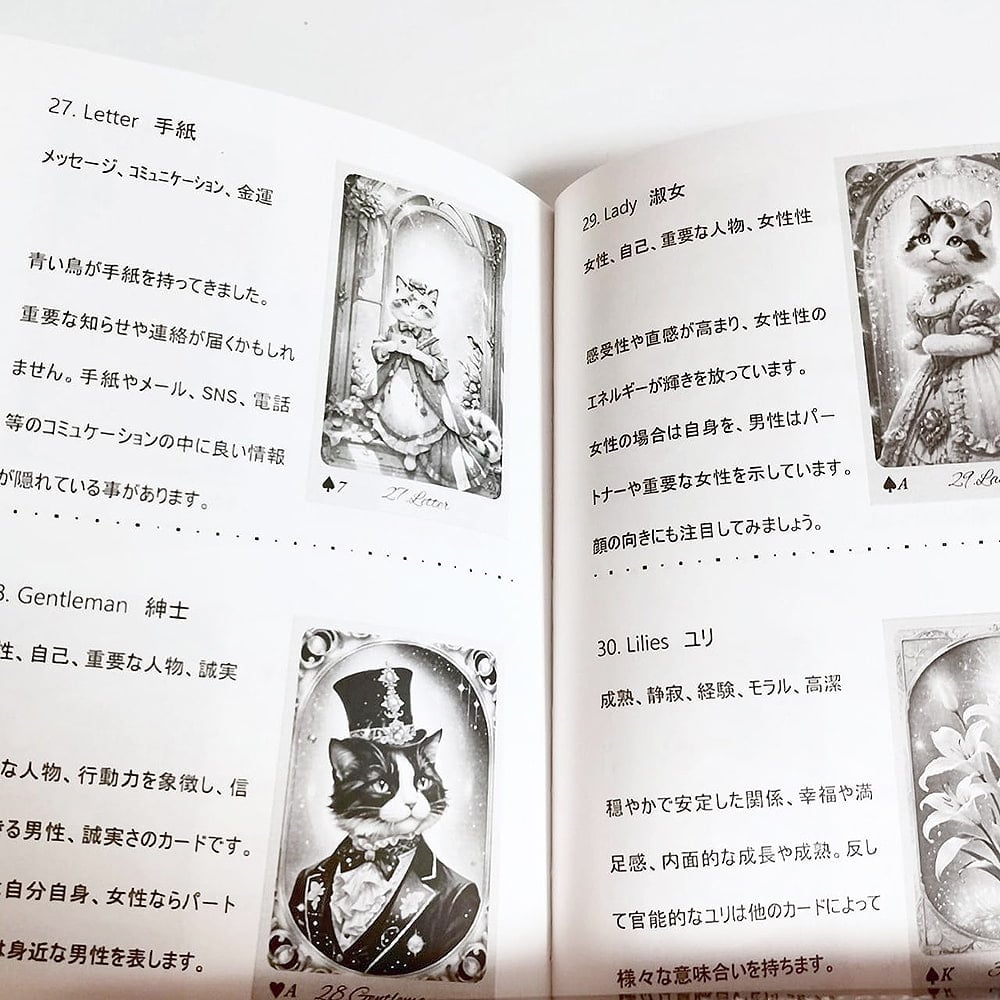 27. Letter 手紙
メッセージ、コミュニケーション、金運
青い鳥が手紙を持ってきました。
重要な知らせや連絡が届くかもしれ
ません。手紙やメール、SNS、電話
等のコミュケーションの中に良い情報
が隠れている事があります。
♠7 27 Letter
8. Gentleman 紳士
性、自己、重要な人物、誠実
な人物、行動力を象徴し、信
きる男性、誠実さのカードです。
自分自身、女性ならパート
は身近な男性を表します。
♥A 28 Gentleme
29. Lady 淑女
女性、自己、重要な人物、女性性
感受性や直感が高まり、女性性の
エネルギーが輝きを放っています。
女性の場合は自身を、男性はパー
トナーや重要な女性を示しています。
顔の向きにも注目してみましょう。
♠A 29. La
30. Lilies ユリ
成熟、静寂、経験、モラル、高潔
穏やかで安定した関係、幸福や満
足感、内面的な成長や成熟。反し
て官能的なユリは他のカードによって
様々な意味合いを持ちます。
♠K